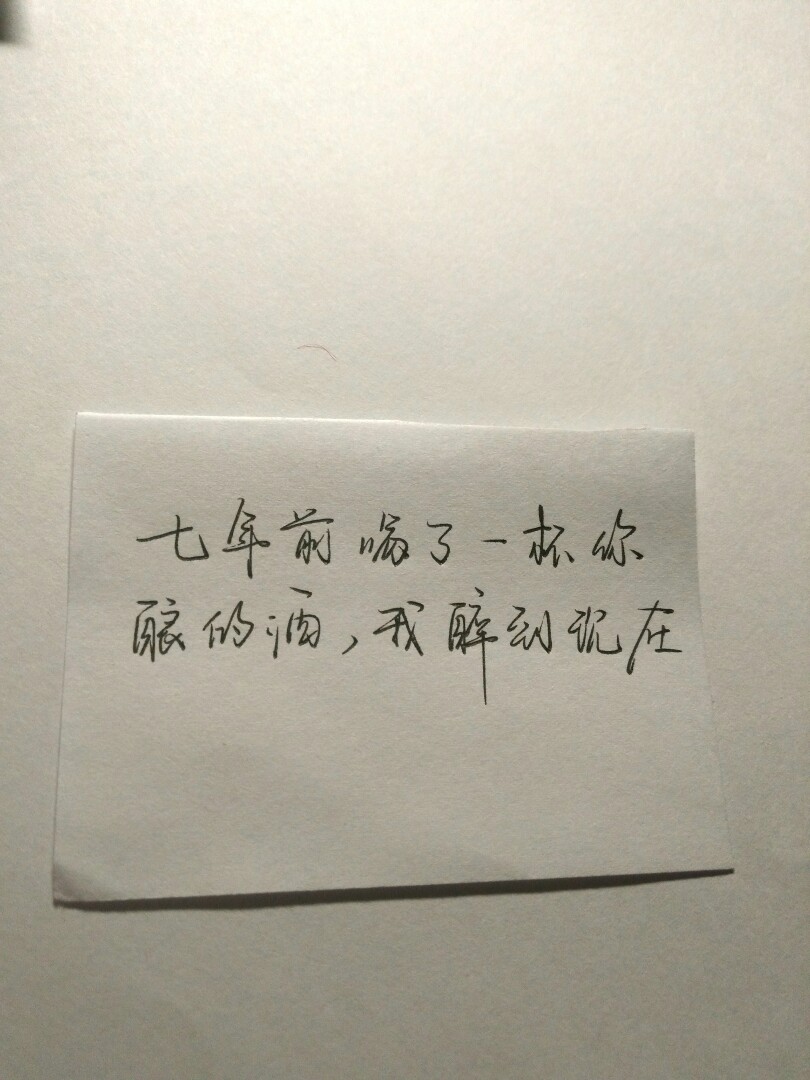 七年前喝了一杯你
酿的酒,我醉到现在